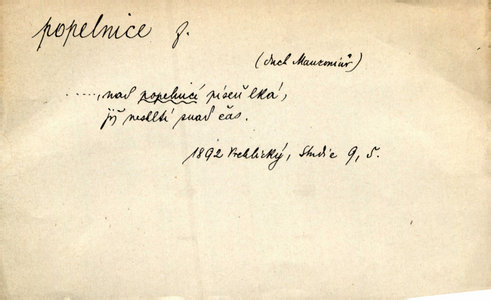 popelnice f.
(duch Mauzoniův)
......, nad popelnicí píseň lká,
jíž neshltí snad čas.
1892 Vrchlický, Studie 9, 5.